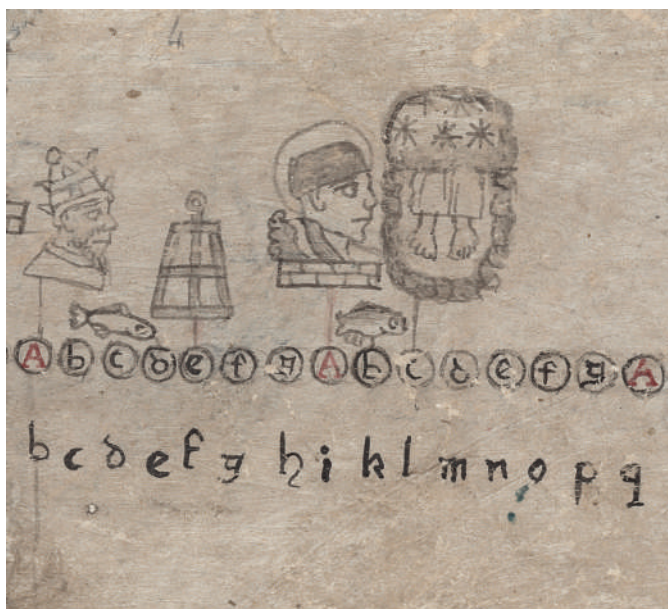 4
A b c d e f g A b c d e f g A
b c d e f g h i k l m n o p q